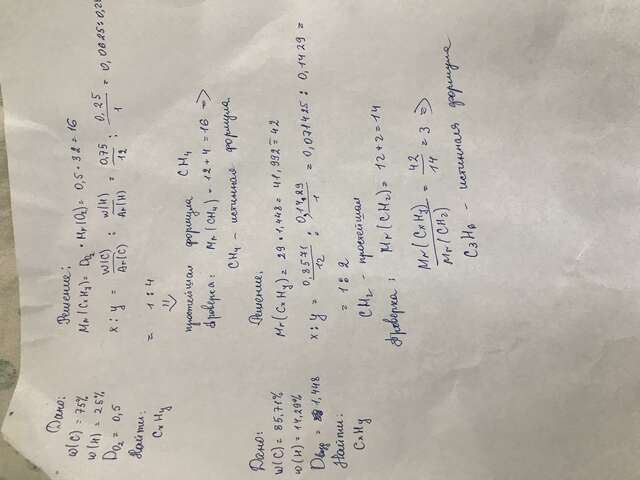 Дано:
w(C) = 75%
w(H) = 25%
D O₂ = 0,5
Найти:
CxHy
Решение:
Mr(CxHy) = D O₂ · Mr(O₂) = 0,5 · 32 = 16
x : y = w(C)/Ar(C) : w(H)/Ar(H) = 0,75/12 : 0,25/1 = 0,0625 : 0,25
= 1 : 4
⇓
простейшая формула CH₄
Проверка: Mr(CH₄) = 12 + 4 = 16 ⇒
CH₄ - истинная формула
Дано:
w(C) = 85,71%
w(H) = 14,29%
D возд = 1,448
Найти:
CxHy
Решение,
Mr(CxHy) = 29 · 1,448 = 41,992 = 42
x : y = 0,8571/12 : 0,1429/1 = 0,071425 : 0,1429 =
= 1 : 2
CH₂ - простейшая
Проверка: Mr(CH₂) = 12 + 2 = 14
Mr(CxHy)/Mr(CH₂) = 42/14 = 3 ⇒
C₃H₆ - истинная формула